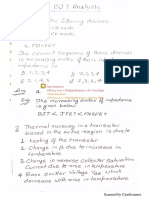 BJT Analysis
the following devices
CB mode
CE mode
4, MOSFET
The correct sequence of these devices
in increasing order of their input
impedance is
a 1,2,3,4 b 2,1,3,4
c 2,1,4,3 d 1,2,4,3
Ans a
Exp The increasing order of impedance
is given below
BJT < JFET < MOSFET
2 Thermal runaway in a transistor
biased in the active region is due to
1 heating of the transistor
2 Change in β due to increase in
3 Change in reverse collector saturation
Current due to rise in temperature
4 Base Emitter Voltage VBE which
decreases with rise in temperature
Scanned by CamScanner